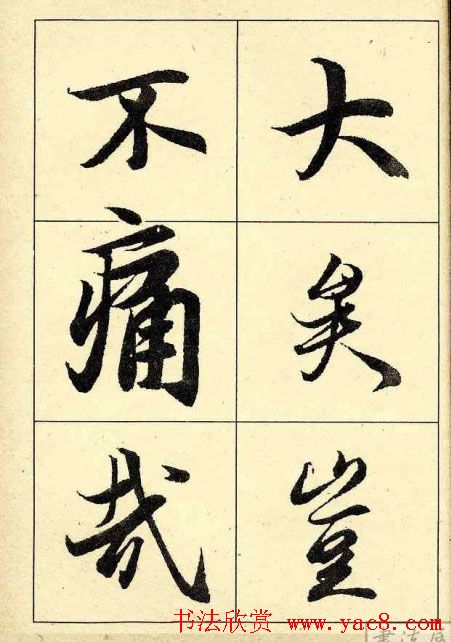 大矣豈
不痛哉
书法欣赏 www.yac8.com